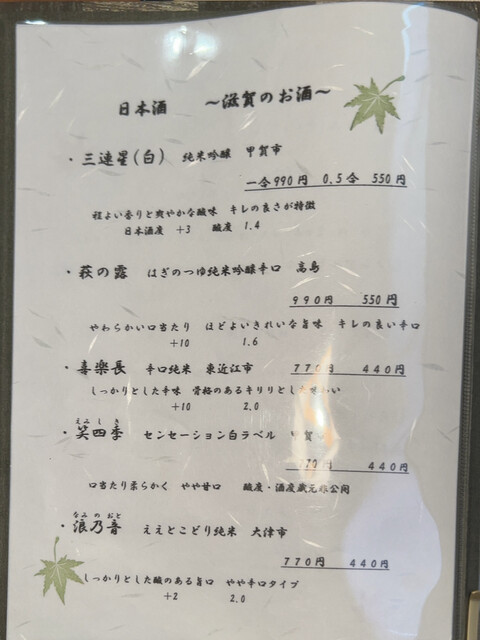 日本酒　～滋賀のお酒～
・三連星(白)　純米吟醸　甲賀市
一合990円　0.5合　550円
程よい香りと爽やかな酸味　キレの良さが特徴
日本酒度　+3　酸度　1.4
・萩の露　はぎのつゆ純米吟醸辛口　高島
990円　550円
やわらかい口当たり　ほどよいきれいな旨味　キレの良い辛口
+10　1.6
・喜楽長　辛口純米　東近江市　770円　440円
しっかりとした辛味　骨格のあるキリリとした味わい
+10　2.0
えみしき
・笑四季　センセーション白ラベル　甲賀
770円　440円
口当たり柔らかく　やや甘口　酸度・酒度蔵元非公開
なみのおと
・浪乃音　ええとこどり純米　大津市
770円　440円
しっかりとした酸のある旨口　やや辛口タイプ
+2　2.0